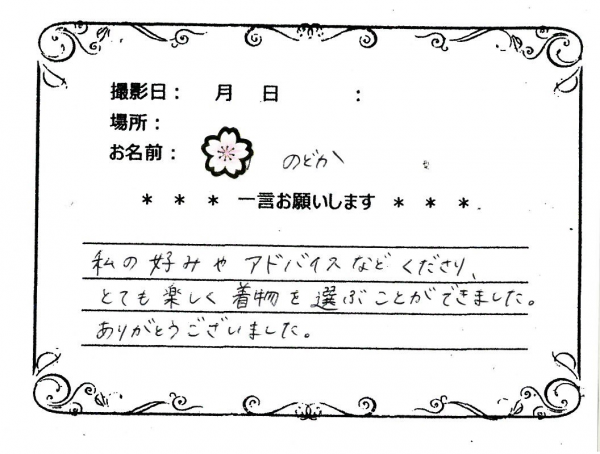 撮影日： 月 日 ：
場所：
お名前： のどか
＊ ＊ ＊ 一言お願いします ＊ ＊ ＊
私の好みやアドバイスなどくださり、
とても楽しく着物を選ぶことができました。
ありがとうございました。